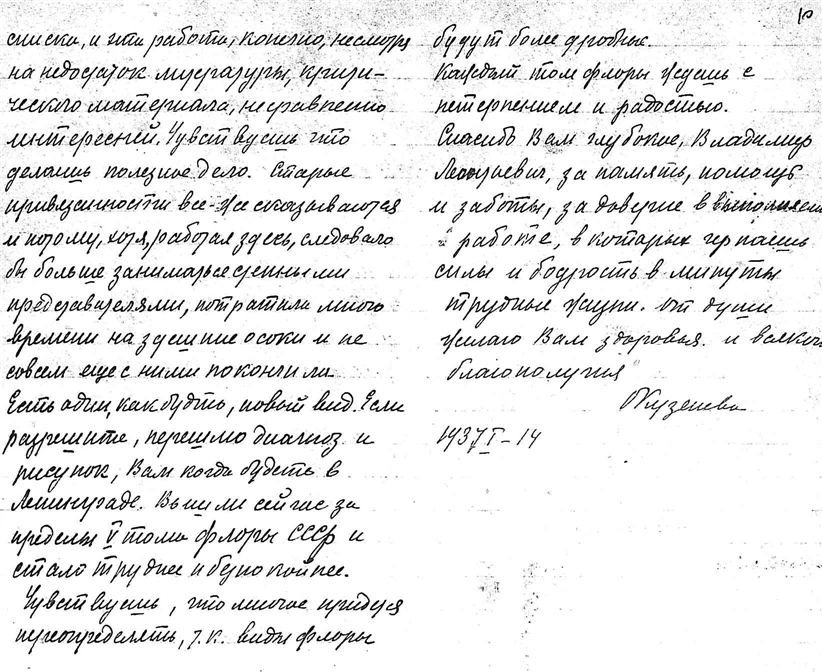 списка, и эта работа, конечно, несмотря
на недостаток литературы, крити-
ческого материала, несравненно
интересней. Чувствуешь что
делаешь полезное дело. Старые
привязанности все-же сказываются
и потому, хотя, работая здесь, следовало
бы больше заниматься степными
представителями, потратила много
времени на здешние осоки и не
совсем еще с ними покончила
Есть один, как будто, новый вид. Если
разрешите, перешлю диагноз и
рисунок, Вам когда будете в
Ленинграде. Вышли сейчас за
пределы V тома флоры СССР и
стало труднее и беспокойнее.
Чувствуешь, что многое придется
переопределять, т.к. виды флоры
10
будут более дробные.
Каждый том флоры ждешь с
нетерпением и радостью.
Спасибо Вам глубокое, Владимир
Леонтьевич, за память, помощь
и заботы, за доверие в
работе, в которых черпаешь
силы и бодрость в минуты
трудные жизни. От души
желаю Вам здоровья и всякого
благополучия
1937 I – 14